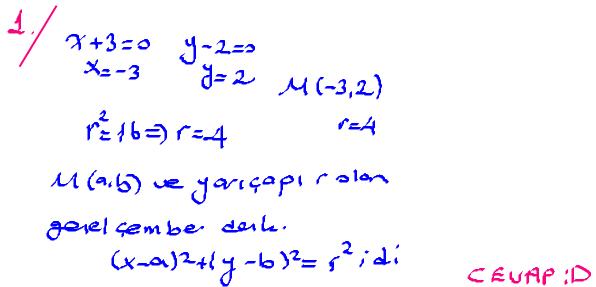 1./
x+3=0 y-2=0
x=-3 y=2 M(-3,2)
r²=16⇒r=4 r=4
M(a,b) ve yarıçapı r olan
genel çember denk.
(x-a)²+(y-b)²=r² idi
CEVAP:D